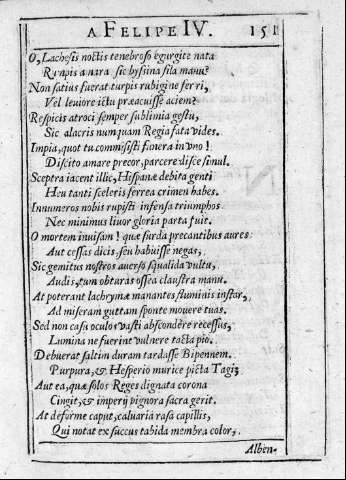 A FELIPE IV. 151
O, Lachesis noctis tenebroso egurgite nata
sic byssina fila manu?
Non satius fuerat turpis rubigine ferri,
Vel leviore ictu præacuisse aciem?
Respicis atroci semper sublimia gestu,
Sic alacris numquam Regia fata vides.
Impia, quot tu commisisti funera in vno!
Discito amare precor, parcere disce simul.
Sceptra iacent illic, Hispanæ debita genti
Heu tanti sceleris ferrea crimen habes.
Innumeros nobis rupisti infensa triumphos
Nec minimus livor gloria parta fuit.
O mortem invisam! quæ surda precantibus aures
Aut cessas dicis, seu habuisse negas,
Sic gemitus nostros averso squalida vultu,
Audis, tum obturas ossea claustra manu.
At poterant lachrymæ manantes fluminis instar,
Ad miseram guttam sponte movere tuas.
Sed non casa oculos vasti abscondère recessus,
Lumina ne fuerint vulnere tacta pio.
Debuerat saltim duram tardasse Bipennem.
Purpura, & Hesperio murice picta Tagi;
Aut ea, quæ solos Reges dignata corona
Cingit, & imperij pignora sacra gerit.
At deforme caput, calvaria rasa capillis,
Qui notat exsuccus tabida membra color,
Alben-